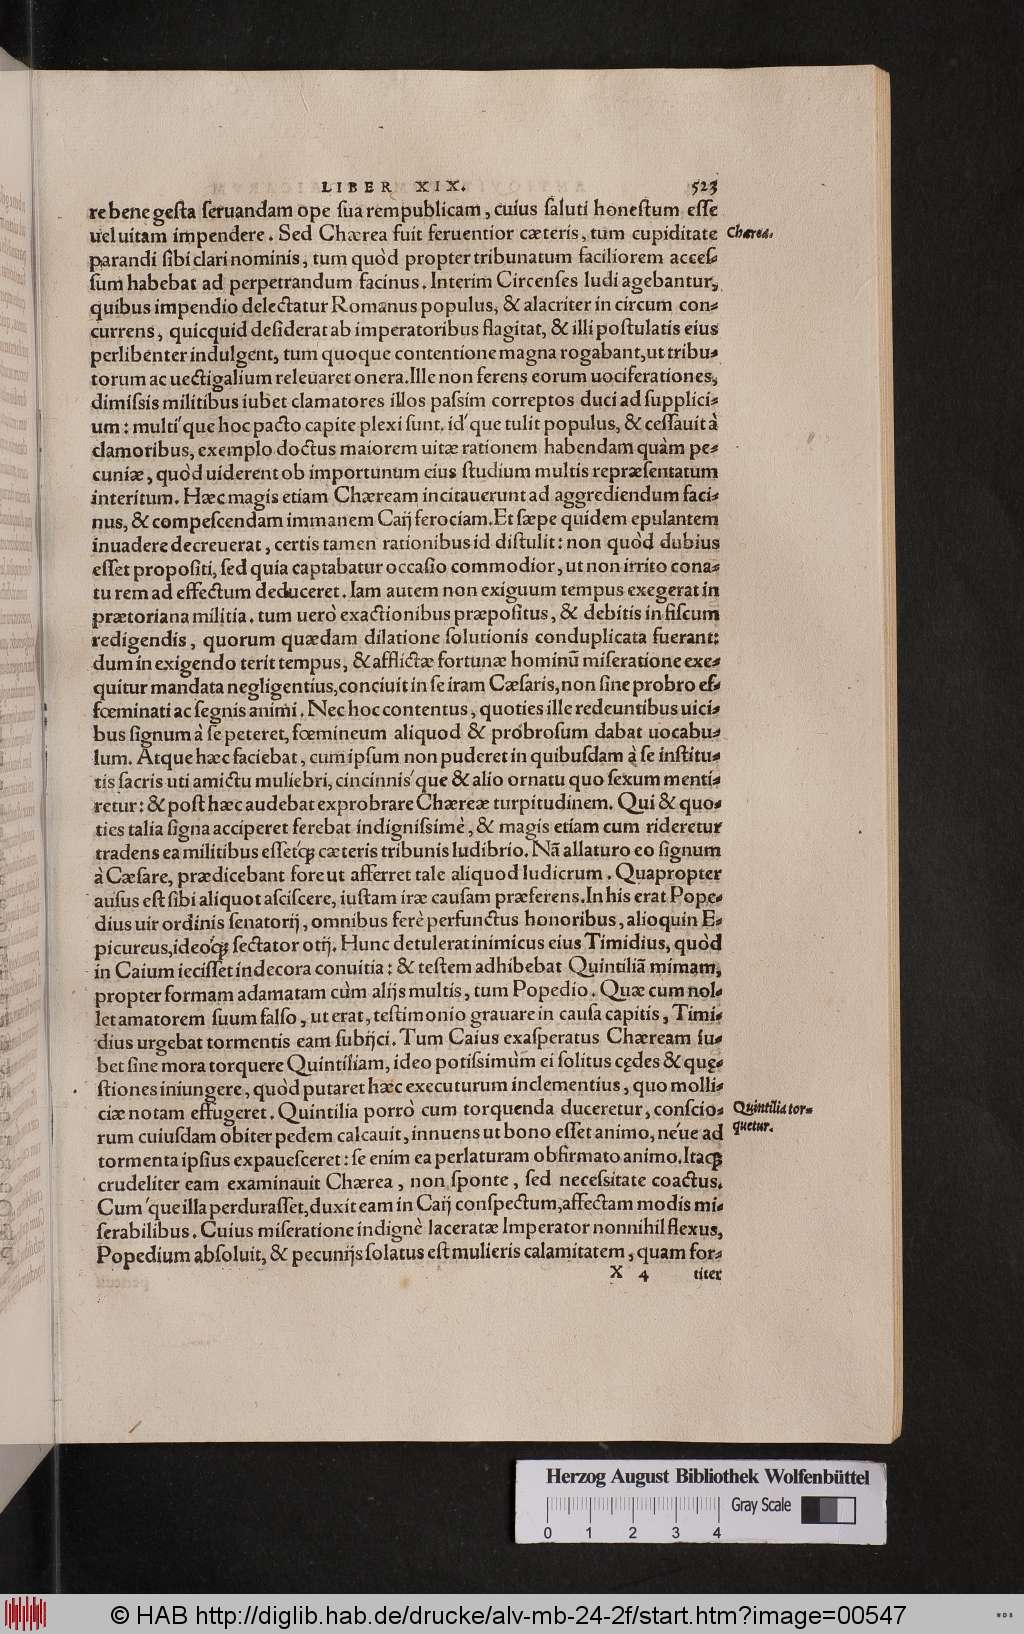 LIBER XIX. 523
re bene gesta seruandam ope sua rempublicam, cuius saluti honestum esse
uel uitam impendere. Sed Chærea fuit feruentior cæteris, tum cupiditate
Chærea.
parandi sibi clari nominis, tum quòd propter tribunatum faciliorem acces-
sum habebat ad perpetrandum facinus. Interim Circenses ludi agebantur,
quibus impendio delectatur Romanus populus, & alacriter in circum con-
currens, quicquid desiderat ab imperatoribus flagitat, & illi postulatis eius
perlibenter indulgent, tum quoque contentione magna rogabant, ut tribu-
torum ac uectigalium releuaret onera. Ille non ferens eorum uociferationes,
dimissis militibus iubet clamatores illos passim correptos duci ad supplici-
um: multi´que hoc pacto capite plexi sunt. id´que tulit populus, & cessauit à
clamoribus, exemplo doctus maiorem uitæ rationem habendam quàm pe-
cuniæ, quòd uiderent ob importunum eius studium multis repræsentatum
interitum. Hæc magis etiam Chæream incitauerunt ad aggrediendum faci-
nus, & compescendam immanem Caij ferociam. Et sæpe quidem epulantem
inuadere decreuerat, certis tamen rationibus id distulit: non quòd dubius
esset propositi, sed quia captabatur occasio commodior, ut non irrito cona-
tu rem ad effectum deduceret. Iam autem non exiguum tempus exegerat in
prætoriana militia. tum uerò exactionibus præpositus, & debitis in fiscum
redigendis, quorum quædam dilatione solutionis conduplicata fuerant:
dum in exigendo terit tempus, & afflictæ fortunæ hominũ miseratione exe-
quitur mandata negligentius, conciuit in se iram Cæsaris, non sine probro ef-
fœminati ac segnis animi. Nec hoc contentus, quoties ille redeuntibus uici-
bus signum à se peteret, fœmineum aliquod & probrosum dabat uocabu-
lum. Atque hæc faciebat, cum ipsum non puderet in quibusdam à se institu-
tis sacris uti amictu muliebri, cincinnis´que & alio ornatu quo sexum menti-
retur: & post hæc audebat exprobrare Chæreæ turpitudinem. Qui & quo-
ties talia signa acciperet ferebat indignissimè, & magis etiam cum rideretur
tradens ea militibus esset´q; cæteris tribunis ludibrio. Nã allaturo eo signum
à Cæsare, prædicebant fore ut afferret tale aliquod ludicrum. Quapropter
ausus est sibi aliquot asciscere, iustam iræ causam præferens. In his erat Pope-
dius uir ordinis senatorij, omnibus ferè perfunctus honoribus, alioquin E-
picureus, ideo´q; sectator otij. Hunc detulerat inimicus eius Timidius, quòd
in Caium iecisset indecora conuitia: & testem adhibebat Quintiliã mimam,
propter formam adamatam cùm alijs multis, tum Popedio. Quæ cum nol-
let amatorem suum falso, ut erat, testimonio grauare in causa capitis, Timi-
dius urgebat tormentis eam subijci. Tum Caius exasperatus Chæream iu-
bet sine mora torquere Quintiliam, ideo potissimùm ei solitus cędes & quę-
stiones iniungere, quòd putaret hæc executurum inclementius, quo molli-
ciæ notam effugeret. Quintilia porrò cum torquenda duceretur, conscio-
Quintilia tor-
quetur.
rum cuiusdam obiter pedem calcauit, innuens ut bono esset animo, ne´ue ad
tormenta ipsius expauesceret: se enim ea perlaturam obfirmato animo. Itaq;
crudeliter eam examinauit Chærea, non sponte, sed necessitate coactus.
Cum´que illa perdurasset, duxit eam in Caij conspectum, affectam modis mi-
serabilibus. Cuius miseratione indignè laceratæ Imperator nonnihil flexus,
Popedium absoluit, & pecunijs solatus est mulieris calamitatem, quam for-
X 4 titer
Herzog August Bibliothek Wolfenbüttel
Gray Scale
0 1 2 3 4
© HAB http://diglib.hab.de/drucke/alv-mb-24-2f/start.htm?image=00547